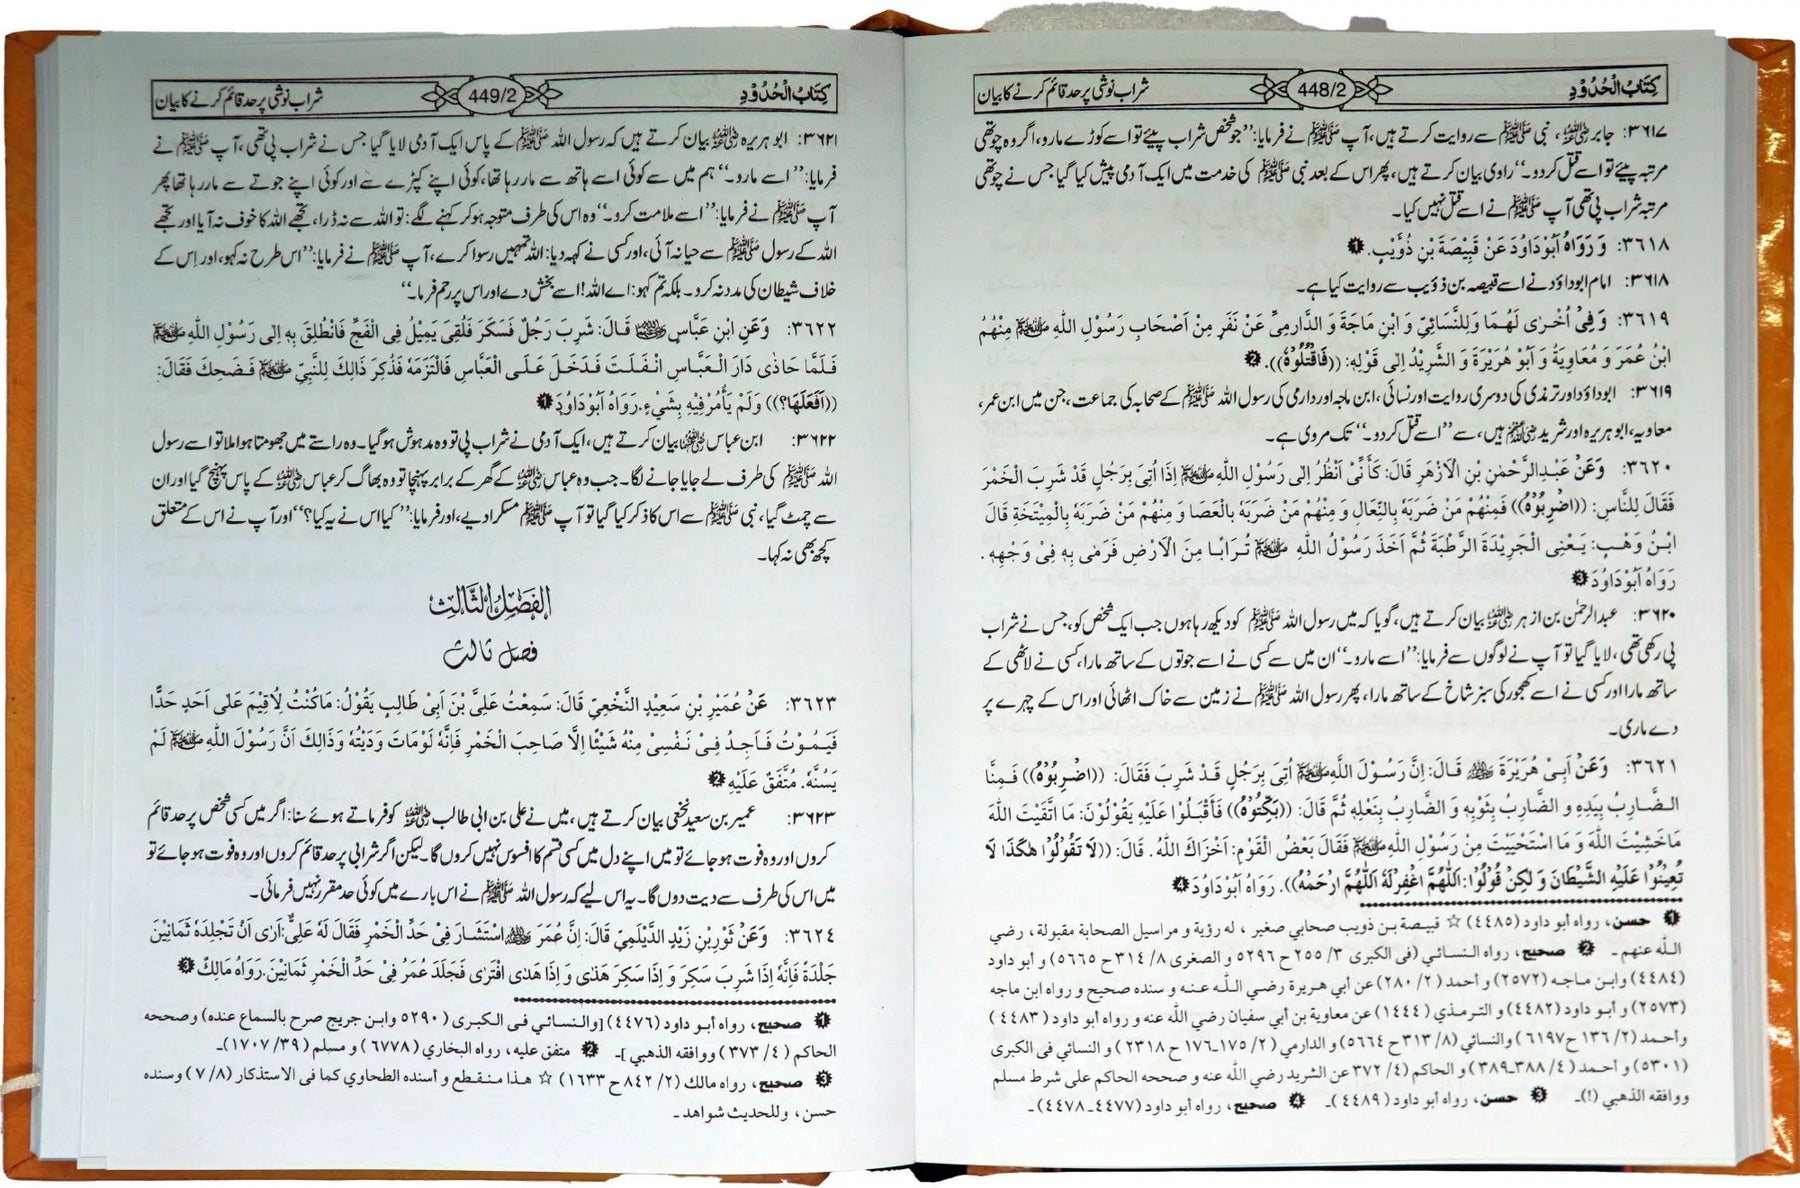 كِتَابُ الْحُدُوْدِ 448/2 شراب نوشی پر حد قائم کرنے کا بیان
۳٦۱۷: جابر رضی اللہ عنہ، نبی ﷺ سے روایت کرتے ہیں، آپ ﷺ نے فرمایا: ’’جو شخص شراب پیئے تو اسے کوڑے مارو، اگر وہ چوتھی
مرتبہ پیئے تو اسے قتل کر دو۔‘‘ راوی بیان کرتے ہیں، پھر اس کے بعد نبی ﷺ کی خدمت میں ایک آدمی پیش کیا گیا جس نے چوتھی
مرتبہ شراب پی تھی آپ ﷺ نے اسے قتل نہیں کیا۔
۳٦۱۸: وَ رَوَاهُ اَبُوْدَاوُدَ عَنْ قَبِيْصَةَ بْنِ ذُؤَيْبٍ. ❶
۳٦۱۸: امام ابوداؤد نے اسے قبیصہ بن ذؤیب سے روایت کیا ہے۔
۳٦۱۹: وَ فِيْ اُخْرٰى لَهُمَا وَلِلنَّسَائِيِّ وَ ابْنِ مَاجَةَ وَ الدَّارِمِيِّ عَنْ نَفَرٍ مِنْ اَصْحَابِ رَسُوْلِ اللهِ ﷺ مِنْهُمُ
ابْنُ عُمَرَ وَ مُعَاوِيَةُ وَ اَبُوْ هُرَيْرَةَ وَ الشَّرِيْدُ اِلٰى قَوْلِهِ: ((فَاقْتُلُوْهُ)). ❷
۳٦۱۹: ابوداؤد اور ترمذی کی دوسری روایت اور نسائی، ابن ماجہ اور دارمی کی رسول اللہ ﷺ کے صحابہ کی جماعت، جن میں ابن عمر،
معاویہ، ابو ہریرہ اور شرید رضی اللہ عنہم ہیں، سے ’’اسے قتل کر دو۔‘‘ تک مروی ہے۔
۳٦۲۰: وَعَنْ عَبْدِالرَّحْمٰنِ بْنِ الْاَزْهَرِ قَالَ: كَأَنِّيْ اَنْظُرُ اِلٰى رَسُوْلِ اللهِ ﷺ اِذَا اُتِيَ بِرَجُلٍ قَدْ شَرِبَ الْخَمْرَ
فَقَالَ لِلنَّاسِ: ((اضْرِبُوْهُ)) فَمِنْهُمْ مَنْ ضَرَبَهٗ بِالنِّعَالِ وَ مِنْهُمْ مَنْ ضَرَبَهٗ بِالْعَصَا وَ مِنْهُمْ مَنْ ضَرَبَهٗ بِالْمِيْتَخَةِ قَالَ
ابْنُ وَهْبٍ: يَعْنِي الْجَرِيْدَةَ الرَّطْبَةَ ثُمَّ اَخَذَ رَسُوْلُ اللهِ ﷺ تُرَابًا مِنَ الْاَرْضِ فَرَمٰى بِهٖ فِيْ وَجْهِهٖ.
رَوَاهُ اَبُوْدَاوُدَ ❸
۳٦۲۰: عبدالرحمٰن بن ازہر رضی اللہ عنہ بیان کرتے ہیں، گویا کہ میں رسول اللہ ﷺ کو دیکھ رہا ہوں جب ایک شخص کو، جس نے شراب
پی رکھی تھی، لایا گیا تو آپ نے لوگوں سے فرمایا: ’’اسے مارو۔‘‘ ان میں سے کسی نے اسے جوتوں کے ساتھ مارا، کسی نے لاٹھی کے
ساتھ مارا اور کسی نے اسے کھجور کی سبز شاخ کے ساتھ مارا، پھر رسول اللہ ﷺ نے زمین سے خاک اٹھائی اور اس کے چہرے پر
دے ماری۔
۳٦۲۱: وَعَنْ اَبِيْ هُرَيْرَةَ رضی اللہ عنہ قَالَ: اِنَّ رَسُوْلَ اللهِ ﷺ اُتِيَ بِرَجُلٍ قَدْ شَرِبَ فَقَالَ: ((اضْرِبُوْهُ)) فَمِنَّا
الضَّارِبُ بِيَدِهٖ وَ الضَّارِبُ بِثَوْبِهٖ وَ الضَّارِبُ بِنَعْلِهٖ ثُمَّ قَالَ: ((بَكِّتُوْهُ)) فَأَقْبَلُوْا عَلَيْهِ يَقُوْلُوْنَ: مَا اتَّقَيْتَ اللهَ
مَاخَشِيْتَ اللهَ وَ مَا اسْتَحْيَيْتَ مِنْ رَسُوْلِ اللهِ ﷺ فَقَالَ بَعْضُ الْقَوْمِ: اَخْزَاكَ اللهُ. قَالَ: ((لَا تَقُوْلُوْا هٰكَذَا لَا
تُعِيْنُوْا عَلَيْهِ الشَّيْطَانَ وَ لٰكِنْ قُوْلُوْا: اَللّٰهُمَّ اغْفِرْلَهُ اَللّٰهُمَّ ارْحَمْهُ)). رَوَاهُ اَبُوْدَاوُدَ ❹
❶ حسن، رواه أبو داود (٤٤٨٥) ☆ قبيصة بن ذويب صحابي صغير، له رؤية و مراسيل الصحابة مقبولة، رضي
الله عنهم۔ ❷ صحيح، رواه النسائي (في الكبرى ٣/ ٢٥٥ ح ٥٢٩٦ و الصغرى ٨/ ٣١٤ ح ٥٦٦٥) و أبو داود
(٤٤٨٤) وابن ماجه (٢٥٧٢) و أحمد (٢/ ٢٨٠) عن أبي هريرة رضي الله عنه و سنده صحيح و رواه ابن ماجه
(٢٥٧٣) و أبو داود (٤٤٨٢) و الترمذي (١٤٤٤) عن معاوية بن أبي سفيان رضي الله عنه و رواه أبو داود (٤٤٨٣)
وأحمد (٢/ ١٣٦ ح ٦١٩٧) والنسائي (٨/ ٣١٣ ح ٥٦٦٤) و الدارمي (٢/ ١٧٥۔١٧٦ ح ٢٣١٨) و النسائي فى الكبرى
(٥٣٠١) و أحمد (٤/ ٣٨٨۔٣٨٩) و الحاكم (٤/ ٣٧٢ عن الشريد رضي الله عنه و صححه الحاكم على شرط مسلم
ووافقه الذهبي (!)۔ ❸ حسن، رواه أبو داود (٤٤٨٩)۔ ❹ صحيح، رواه أبو داود (٤٤٧٧۔٤٤٧٨)۔
كِتَابُ الْحُدُوْدِ 449/2 شراب نوشی پر حد قائم کرنے کا بیان
۳٦۲۱: ابو ہریرہ رضی اللہ عنہ بیان کرتے ہیں کہ رسول اللہ ﷺ کے پاس ایک آدمی لایا گیا جس نے شراب پی تھی، آپ ﷺ نے
فرمایا: ’’اسے مارو۔‘‘ ہم میں سے کوئی اسے ہاتھ سے مار رہا تھا، کوئی اپنے کپڑے سے اور کوئی اپنے جوتے سے مار رہا تھا پھر
آپ ﷺ نے فرمایا: ’’اسے ملامت کرو۔‘‘ وہ اس کی طرف متوجہ ہو کر کہنے لگے: تو اللہ سے نہ ڈرا، تجھے اللہ کا خوف نہ آیا اور تجھے
اللہ کے رسول ﷺ سے حیا نہ آئی، اور کسی نے کہہ دیا: اللہ تمہیں رسوا کرے، آپ ﷺ نے فرمایا: ’’اس طرح نہ کہو، اور اس کے
خلاف شیطان کی مدد نہ کرو۔ بلکہ تم کہو: اے اللہ! اسے بخش دے اور اس پر رحم فرما۔‘‘
۳٦۲۲: وَعَنِ ابْنِ عَبَّاسٍ رضی اللہ عنہما قَالَ: شَرِبَ رَجُلٌ فَسَكَرَ فَلُقِيَ يَمِيْلُ فِي الْفَجِّ فَانْطُلِقَ بِهٖ اِلٰى رَسُوْلِ اللهِ ﷺ
فَلَمَّا حَاذٰى دَارَ الْعَبَّاسِ انْفَلَتَ فَدَخَلَ عَلَى الْعَبَّاسِ فَالْتَزَمَهٗ فَذُكِرَ ذَالِكَ لِلنَّبِيِّ ﷺ فَضَحِكَ فَقَالَ:
((اَفَعَلَهَا؟)) وَلَمْ يَأْمُرْفِيْهِ بِشَيْءٍ. رَوَاهُ اَبُوْدَاوُدَ ❶
۳٦۲۲: ابن عباس رضی اللہ عنہما بیان کرتے ہیں، ایک آدمی نے شراب پی تو وہ مدہوش ہو گیا۔ وہ راستے میں جھومتا ہوا ملا تو اسے رسول
اللہ ﷺ کی طرف لے جایا جانے لگا۔ جب وہ عباس رضی اللہ عنہ کے گھر کے برابر پہنچا تو وہ بھاگ کر عباس رضی اللہ عنہ کے پاس پہنچ گیا اور ان
سے چمٹ گیا، نبی ﷺ سے اس کا ذکر کیا گیا تو آپ ﷺ مسکرا دیے، اور فرمایا: ’’کیا اس نے یہ کیا؟‘‘ اور آپ نے اس کے متعلق
کچھ بھی نہ کہا۔
الفَصْلُ الثَّالِثُ
فصل ثالث
۳٦۲۳: عَنْ عُمَيْرِ بْنِ سَعِيْدٍ النَّخْعِيِّ قَالَ: سَمِعْتُ عَلِيَّ بْنَ اَبِيْ طَالِبٍ يَقُوْلُ: مَاكُنْتُ لِاُقِيْمَ عَلٰى اَحَدٍ حَدًّا
فَيَمُوْتُ فَاَجِدُ فِيْ نَفْسِيْ مِنْهُ شَيْئًا اِلَّا صَاحِبَ الْخَمْرِ فَاِنَّهٗ لَوْمَاتَ وَدَيْتُهٗ وَذَالِكَ اَنَّ رَسُوْلَ اللهِ ﷺ لَمْ
يَسُنَّهٗ. مُتَّفَقٌ عَلَيْهِ ❷
۳٦۲۳: عمیر بن سعید نخعی بیان کرتے ہیں، میں نے علی بن ابی طالب رضی اللہ عنہ کو فرماتے ہوئے سنا: اگر میں کسی شخص پر حد قائم
کروں اور وہ فوت ہو جائے تو میں اپنے دل میں کسی قسم کا افسوس نہیں کروں گا۔ لیکن اگر شرابی پر حد قائم کروں اور وہ فوت ہو جائے تو
میں اس کی طرف سے دیت دوں گا۔ یہ اس لیے کہ رسول اللہ ﷺ نے اس بارے میں کوئی حد مقرر نہیں فرمائی۔
۳٦۲٤: وَعَنْ ثَوْرِبْنِ زَيْدٍ الدَّيْلَمِيِّ قَالَ: اِنَّ عُمَرَ رضی اللہ عنہ اسْتَشَارَ فِيْ حَدِّ الْخَمْرِ فَقَالَ لَهٗ عَلِيٌّ: اَرٰى اَنْ تَجْلِدَهٗ ثَمَانِيْنَ
جَلْدَةً فَاِنَّهٗ اِذَا شَرِبَ سَكِرَ وَ اِذَا سَكِرَ هَذٰى وَ اِذَا هَذٰى افْتَرٰى فَجَلَدَ عُمَرُ فِيْ حَدِّ الْخَمْرِ ثَمَانِيْنَ. رَوَاهُ مَالِكٌ ❸
❶ صحيح، رواه أبو داود (٤٤٧٦) [والنسائي في الكبرى (٥٢٩٠ وابن جريج صرح بالسماع عنده) وصححه
الحاكم (٤/ ٣٧٣) ووافقه الذهبي]۔ ❷ متفق عليه، رواه البخاري (٦٧٧٨) و مسلم (٣٩/ ١٧٠٧)۔
❸ صحيح، رواه مالك (٢/ ٨٤٢ ح ١٦٣٣) ☆ هذا منقطع و أسنده الطحاوي كما في الاستذكار (٨/ ٧) وسنده
حسن، وللحديث شواهد۔